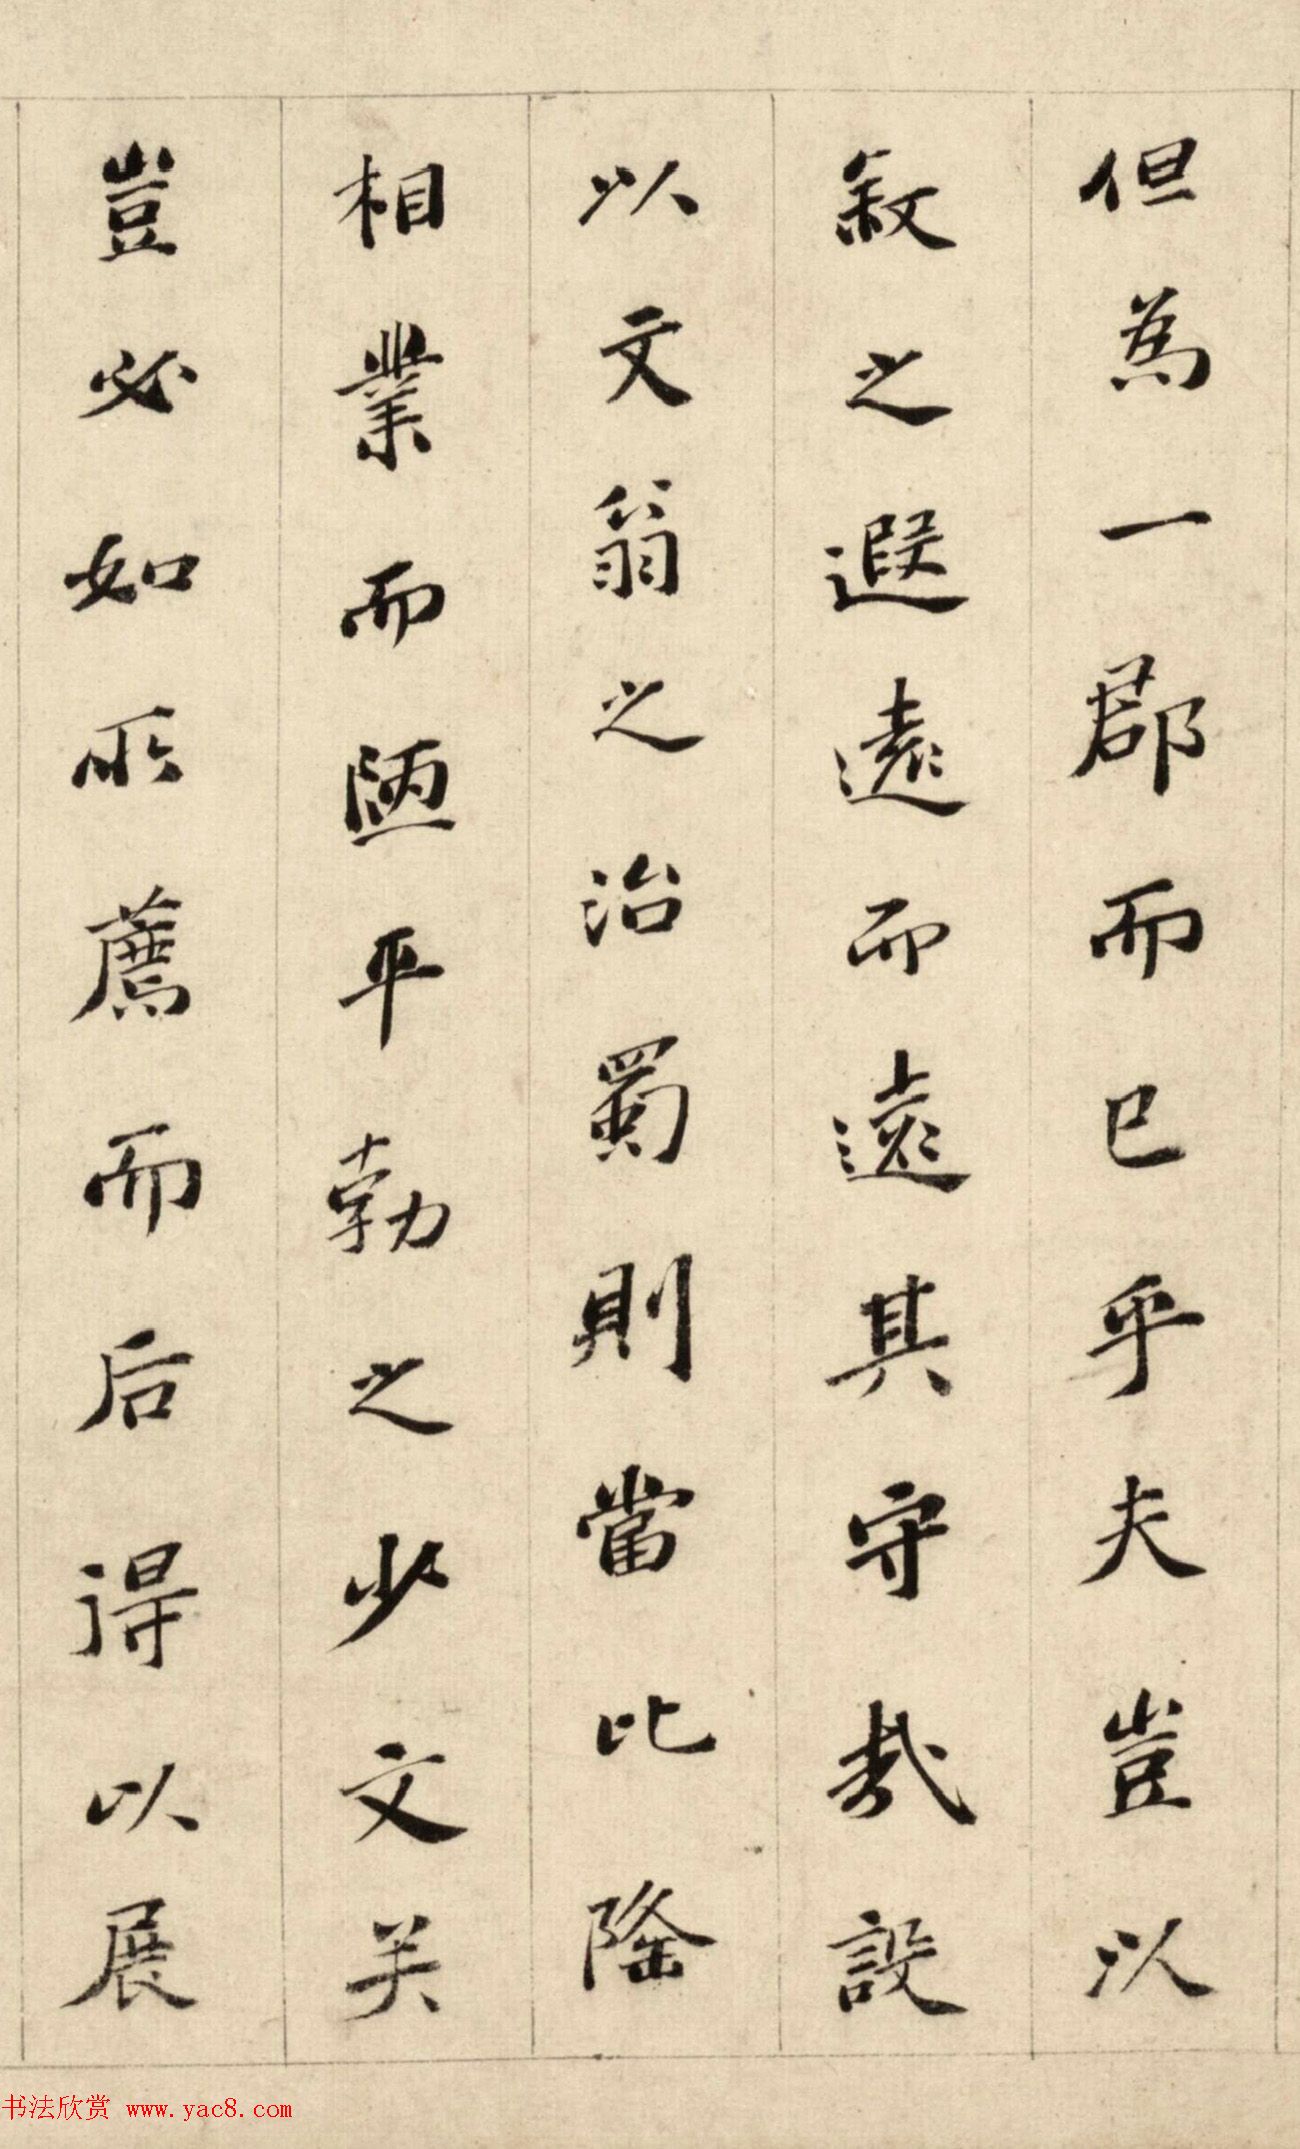 但為一郡而已乎夫豈以
叙之遐遠而遠其守哉設
以文翁之治蜀則當比隆
相業而陋平勃之少文矣
豈必如所薦而后得以展
书法欣赏 www.yac8.com